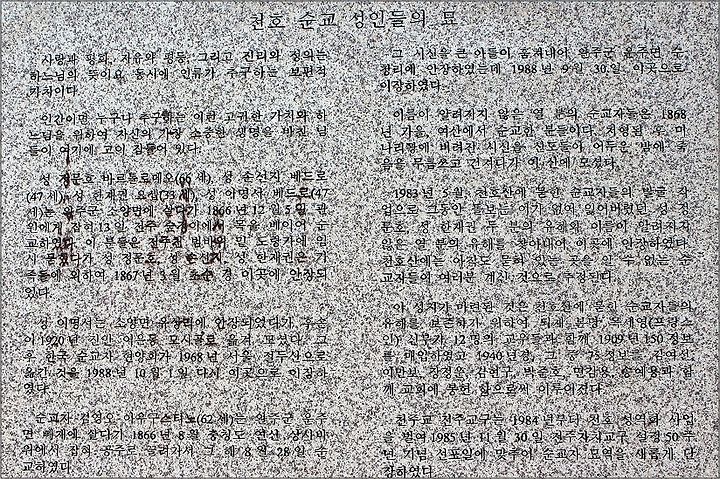 천호 순교 성인들의 묘
사랑과 평화, 자유와 평등, 그리고 진리와 정의는
하느님의 뜻이요 동시에 인류가 추구하는 보편적
가치이다.
인간이면 누구나 추구하는 이런 고귀한 가치와 하
느님을 위하여 자신의 가장 소중한 생명을 바친 님
들이 여기에 고이 잠들어 있다.
성 정문호 바르톨로메오(66세), 성 손선지 베드로
(47세), 성 한재권 요셉(33세), 성 이명서 베드로(47
세)는 완주군 소양면에 살다가 1866년 12월 5일 관
원에게 잡혀 13일 전주 숲정이에서 목을 베이어 순
교하였다. 이 분들은 전주천 범바위 밑 도랑가에 임
시 묻혔다가 성 정문호, 성 손선지, 성 한재권은 가
족들에 의하여 1867년 3월 초순 경 이곳에 안장되
었다.
성 이명서는 소양면 유상리에 안장되었다가 후손
이 1920년 진안 어은동 모시골로 옮겨 모셨다. 그
후 한국 순교자 현양회가 1968년 서울 절두산으로
옮긴 것을 1988년 10월 1일 다시 이곳으로 이장하
였다.
순교자 김영오 아우구스티노(62세)는 완주군 운주
면 에 살다가 1866년 8월 충청도 연산
위에서 잡혀 공주로 끌려가서 그 해 8월 28일 순
교하였다.
그 시신을 큰 아들이 훔쳐내어 완주군 운주면 수
청리에 안장하였는데 1988년 9월 30일 이곳으로
이장하였다.
이름이 알려지지 않은 열 분의 순교자들은 1868
년 가을, 여산에서 순교한 분들이다. 처형된 후 미
나리꽝에 버려진 시신을 신도들이 어두운 밤에 죽
음을 무릅쓰고 건져다가 이 산에 모셨다.
1983년 5월, 천호산에 묻힌 순교자들의 발굴 작
업으로 그동안 돌보는 이가 없어 잊어버렸던 성 정
문호, 성 한재권 두 분의 유해와 이름이 알려지지
않은 열 분의 유해를 찾아내어 이곳에 안장하였다.
천호산에는 아직도 묻혀 있는 곳을 알 수 없는 순
교자들이 여러분 계신 것으로 추정된다.
이 성지가 마련된 것은 천호산에 묻힌 순교자들의
유해를 보존하기 위하여 되재 본당 목세영(프랑스
인) 신부가 12명의 교우들과 함께 1909년 150정보
를 매입하였고 1940년경, 그 중 75정보를 김여선,
이만보, 장정운, 김현구, 박준호, 민감룡, 송예용과 함
께 교회에 봉헌 함으로써 이루어졌다.
천주교 전주교구는 1984년부터 천호 성역화 사업
을 벌여 1985년 11월 30일 전주자치교구 설정 50주
년 기념 선포일에 맞추어 순교자 묘역을 새롭게 단
장하였다.